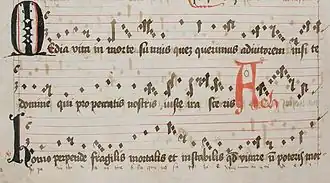 Media vita in morte sumus quem querimus adiutorem nisi te
domine qui pro peccatis nostris iuste irasceris Ach
homo perpende fragilis mortalis et instabilis qd vitare non poteris mor